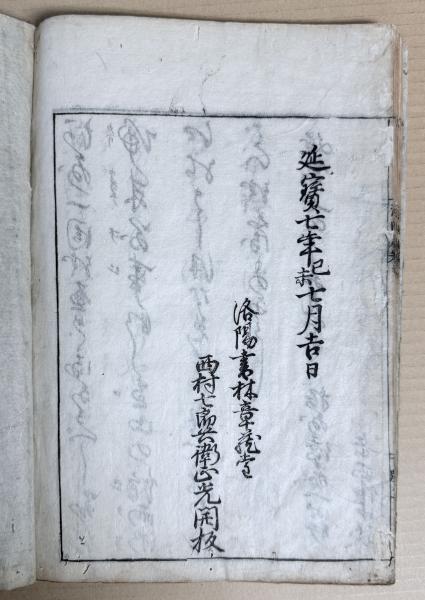 延寳七年己未七月吉日
洛陽書林章蔵堂
西村七郎兵衛正光開板